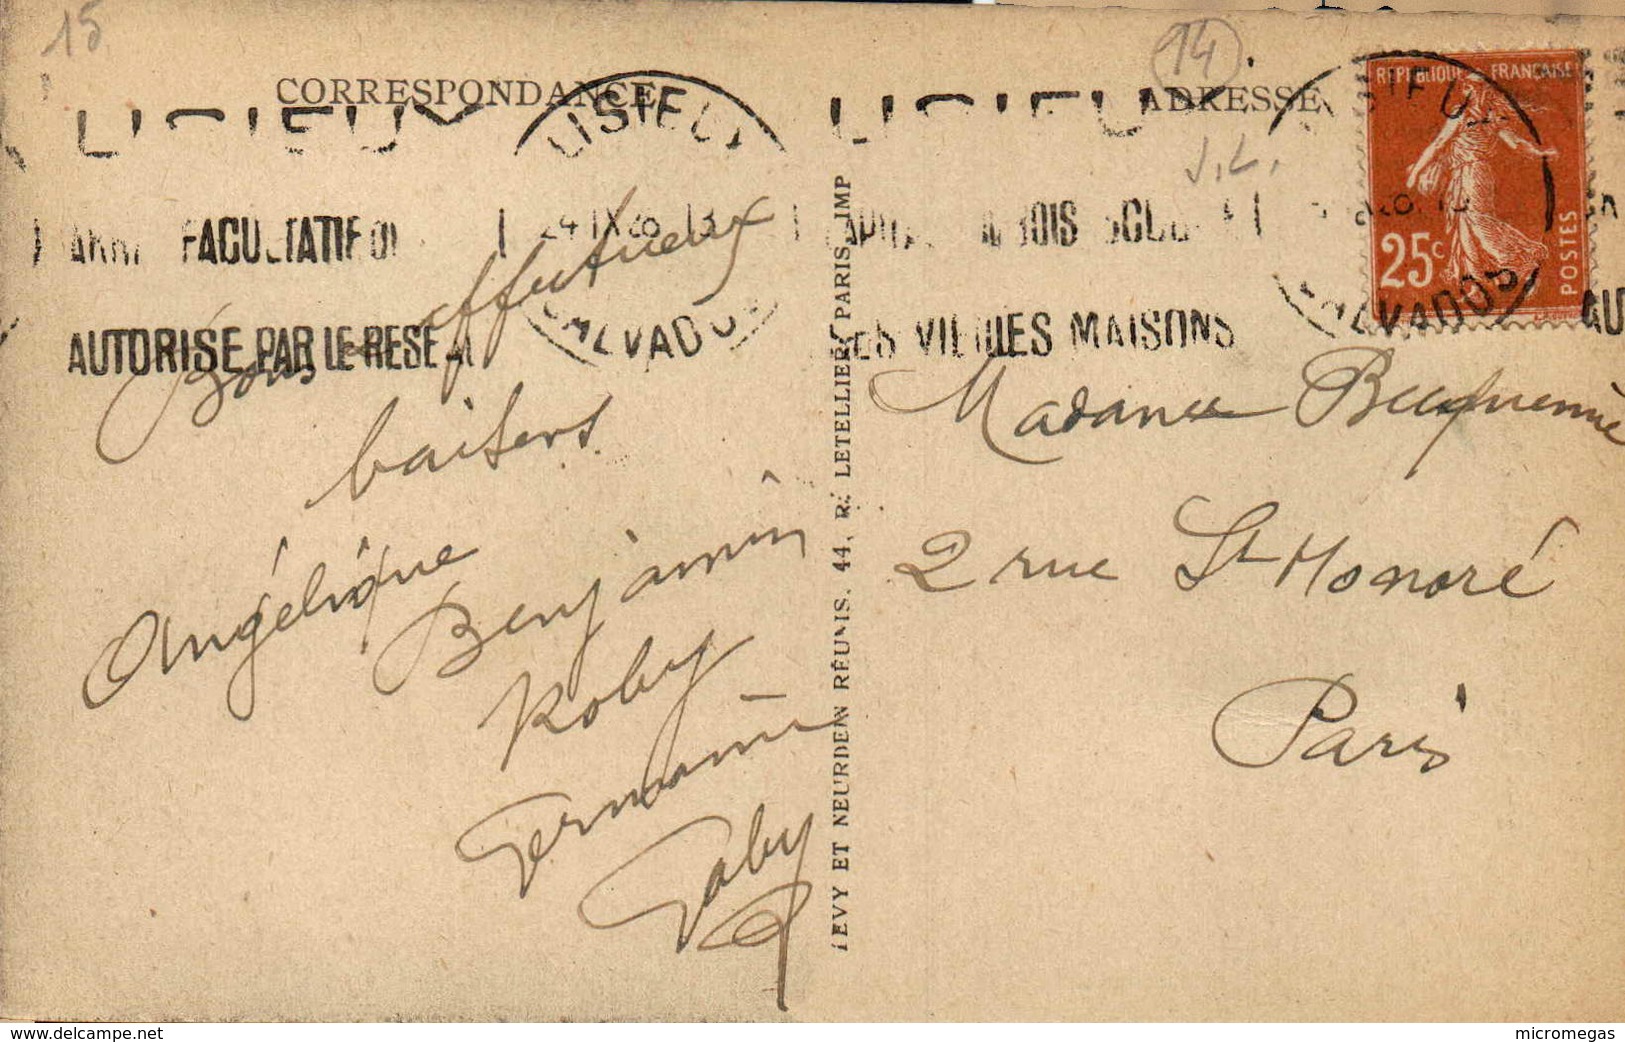 15
14
CORRESPONDANCE
ADRESSE
J.L.
LISIEUX
LISIEUX
LISIEUX
24 IX 26 13
CALVADOS
FACULTATIF
AUTORISE PAR LE RESEA
BOIS SCUL
DES VIEILLES MAISONS
REPUBLIQUE FRANÇAISE
25c
POSTES
CALVADOS
AU
Bons affectueux
baisers
Angélique
Benjamin
Roby
Germaine
Gaby
LEVY ET NEURDEIN RÉUNIS, 44, R. LETELLIER, PARIS IMP
Madame
2 rue St Honoré
Paris
www.delcampe.net
micromegas